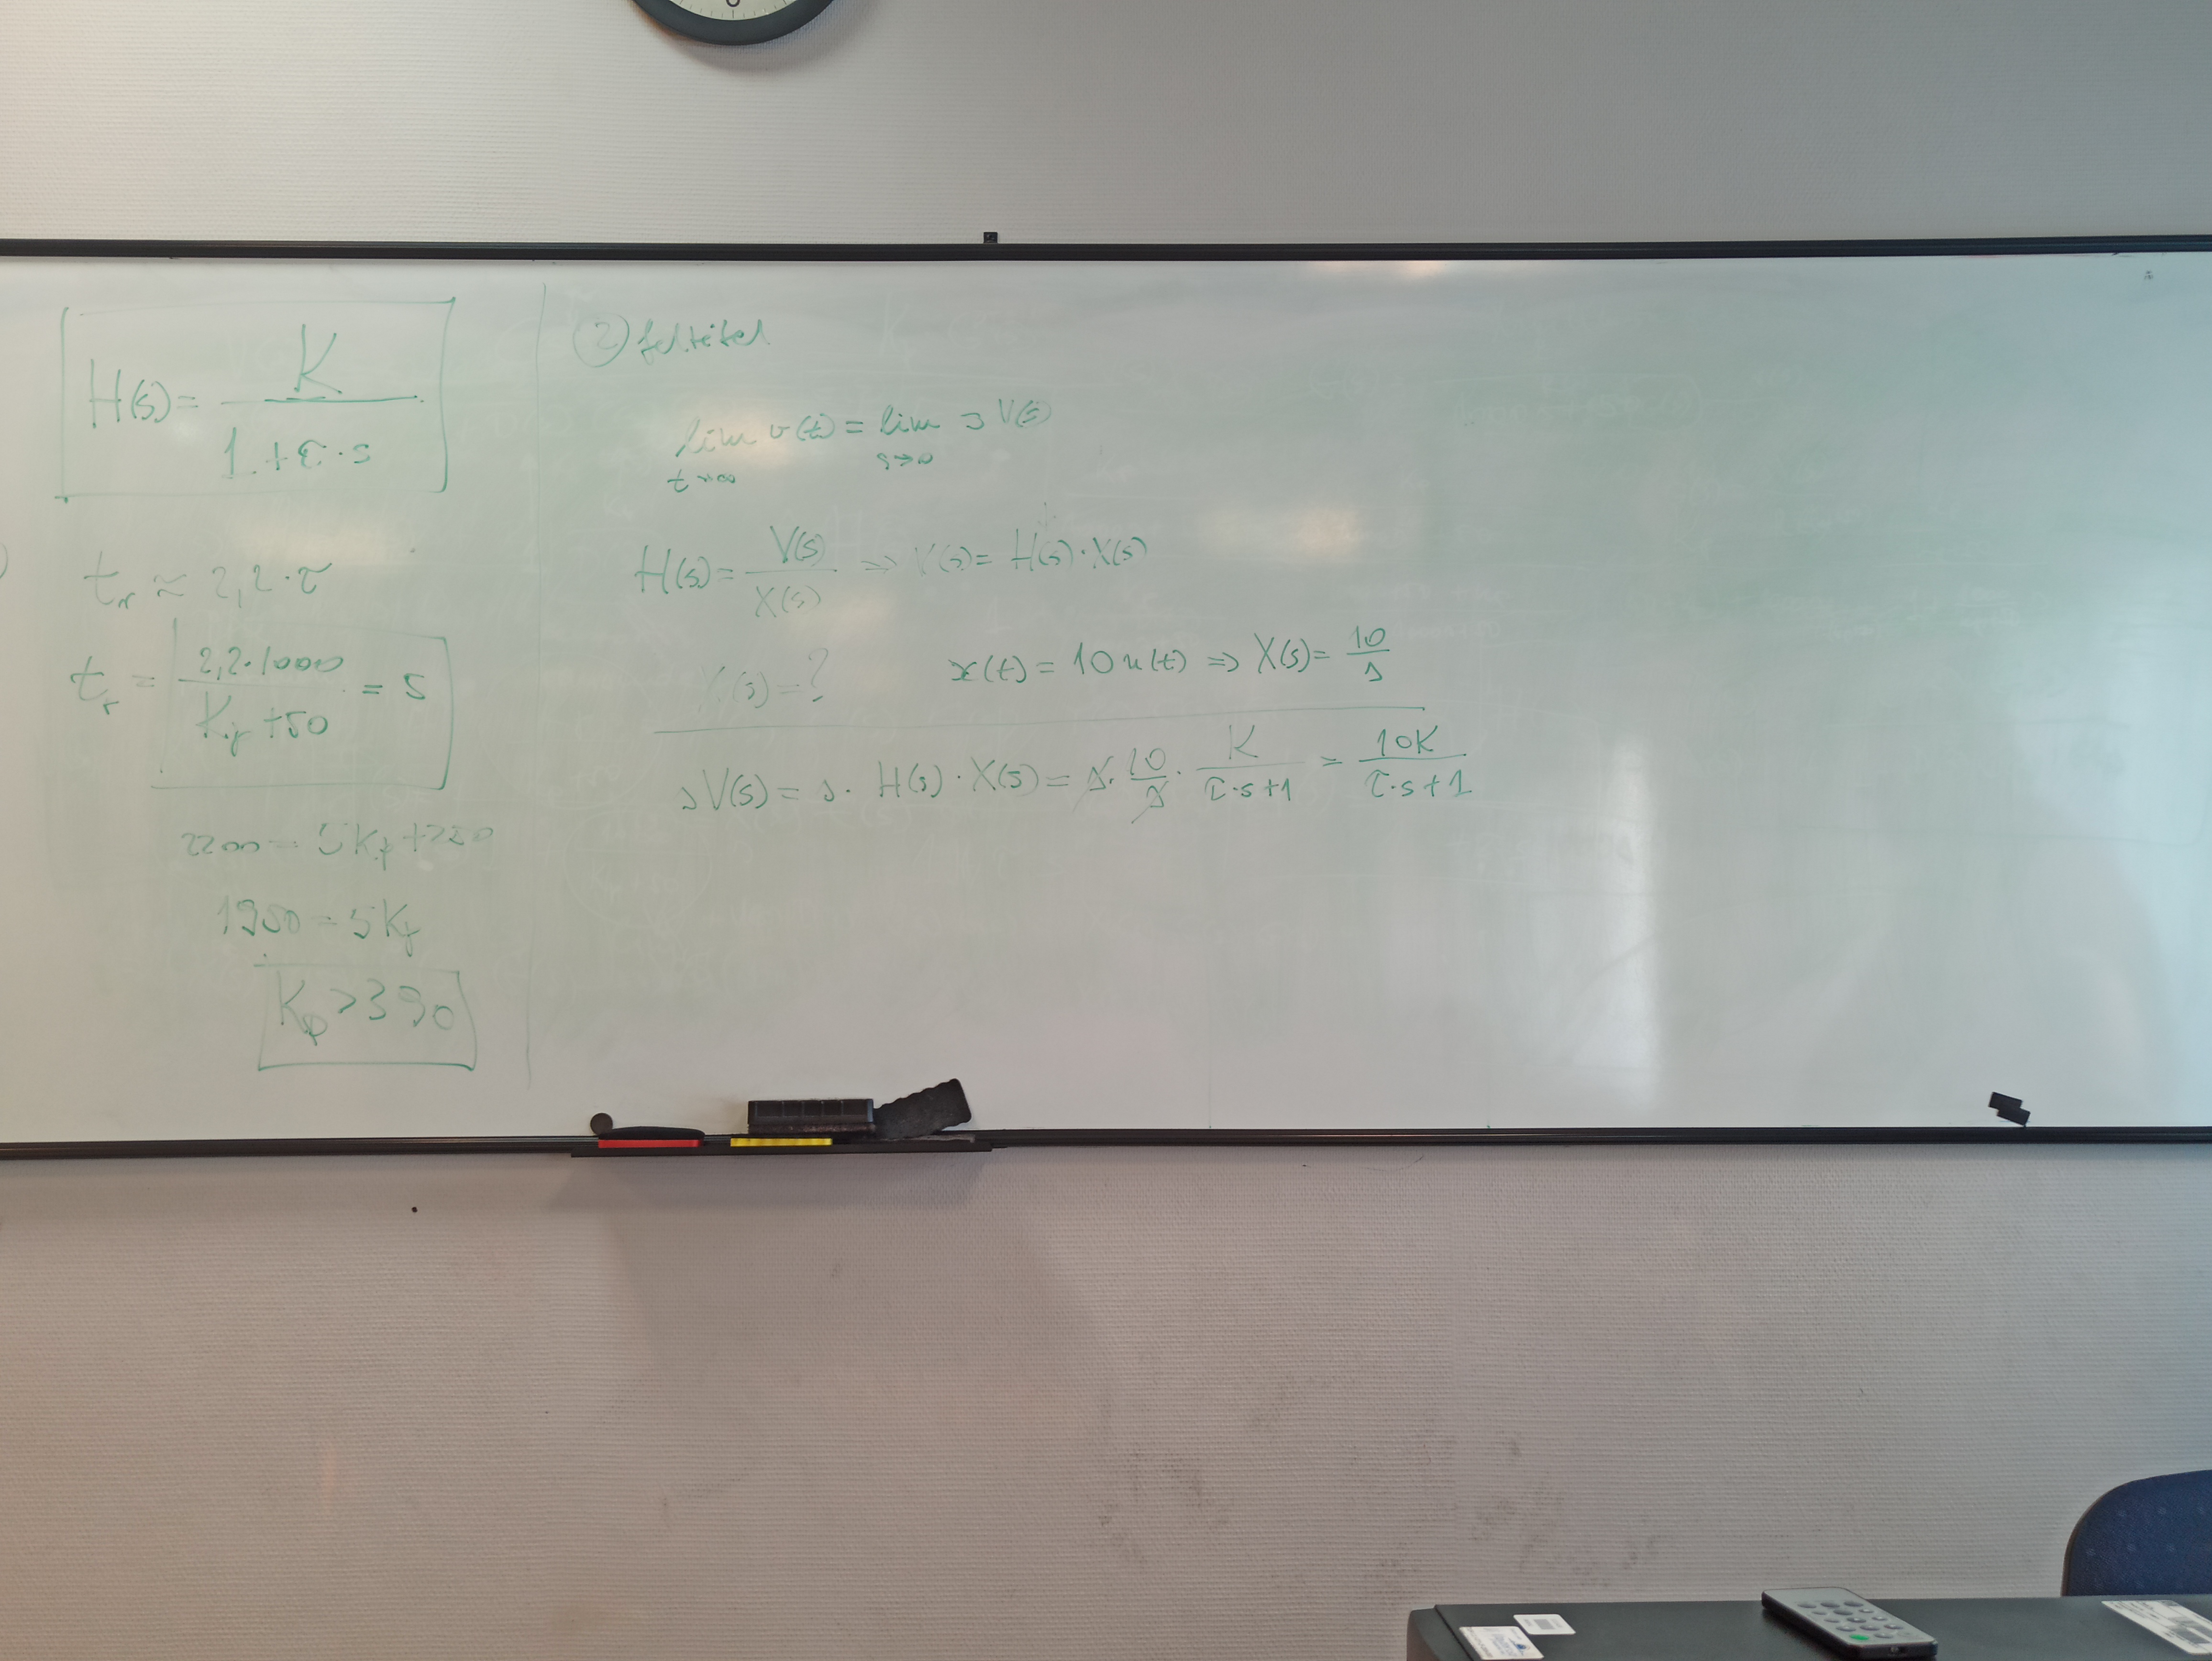 H(s) = K / (1 + τ·s)
tr ≈ 2,2·τ
tr = 2,2·1000 / (Kp + 50) = 5
2200 = 5Kp + 250
1950 = 5Kp
Kp > 390
② feltétel
lim t→∞ v(t) = lim s→0 s V(s)
H(s) = V(s) / X(s) ⇒ V(s) = H(s)·X(s)
X(s) = ? x(t) = 10 u(t) ⇒ X(s) = 10 / s
s V(s) = s · H(s) · X(s) = s · 10 / s · K / (τ·s + 1) = 10K / (τ·s + 1)